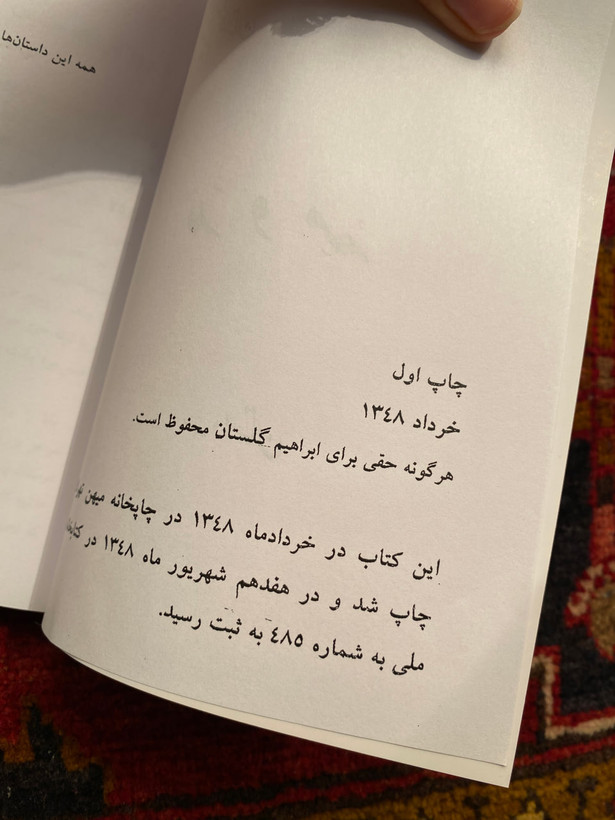 همه این داستان‌ها
چاپ اول
خرداد ۱۳۴۸
هرگونه حقی برای ابراهیم گلستان محفوظ است.
این کتاب در خردادماه ۱۳۴۸ در چاپخانه میهن
چاپ شد و در هفدهم شهریور ماه ۱۳۴۸ در
ملی به شماره ۴۸۵ به ثبت رسید.